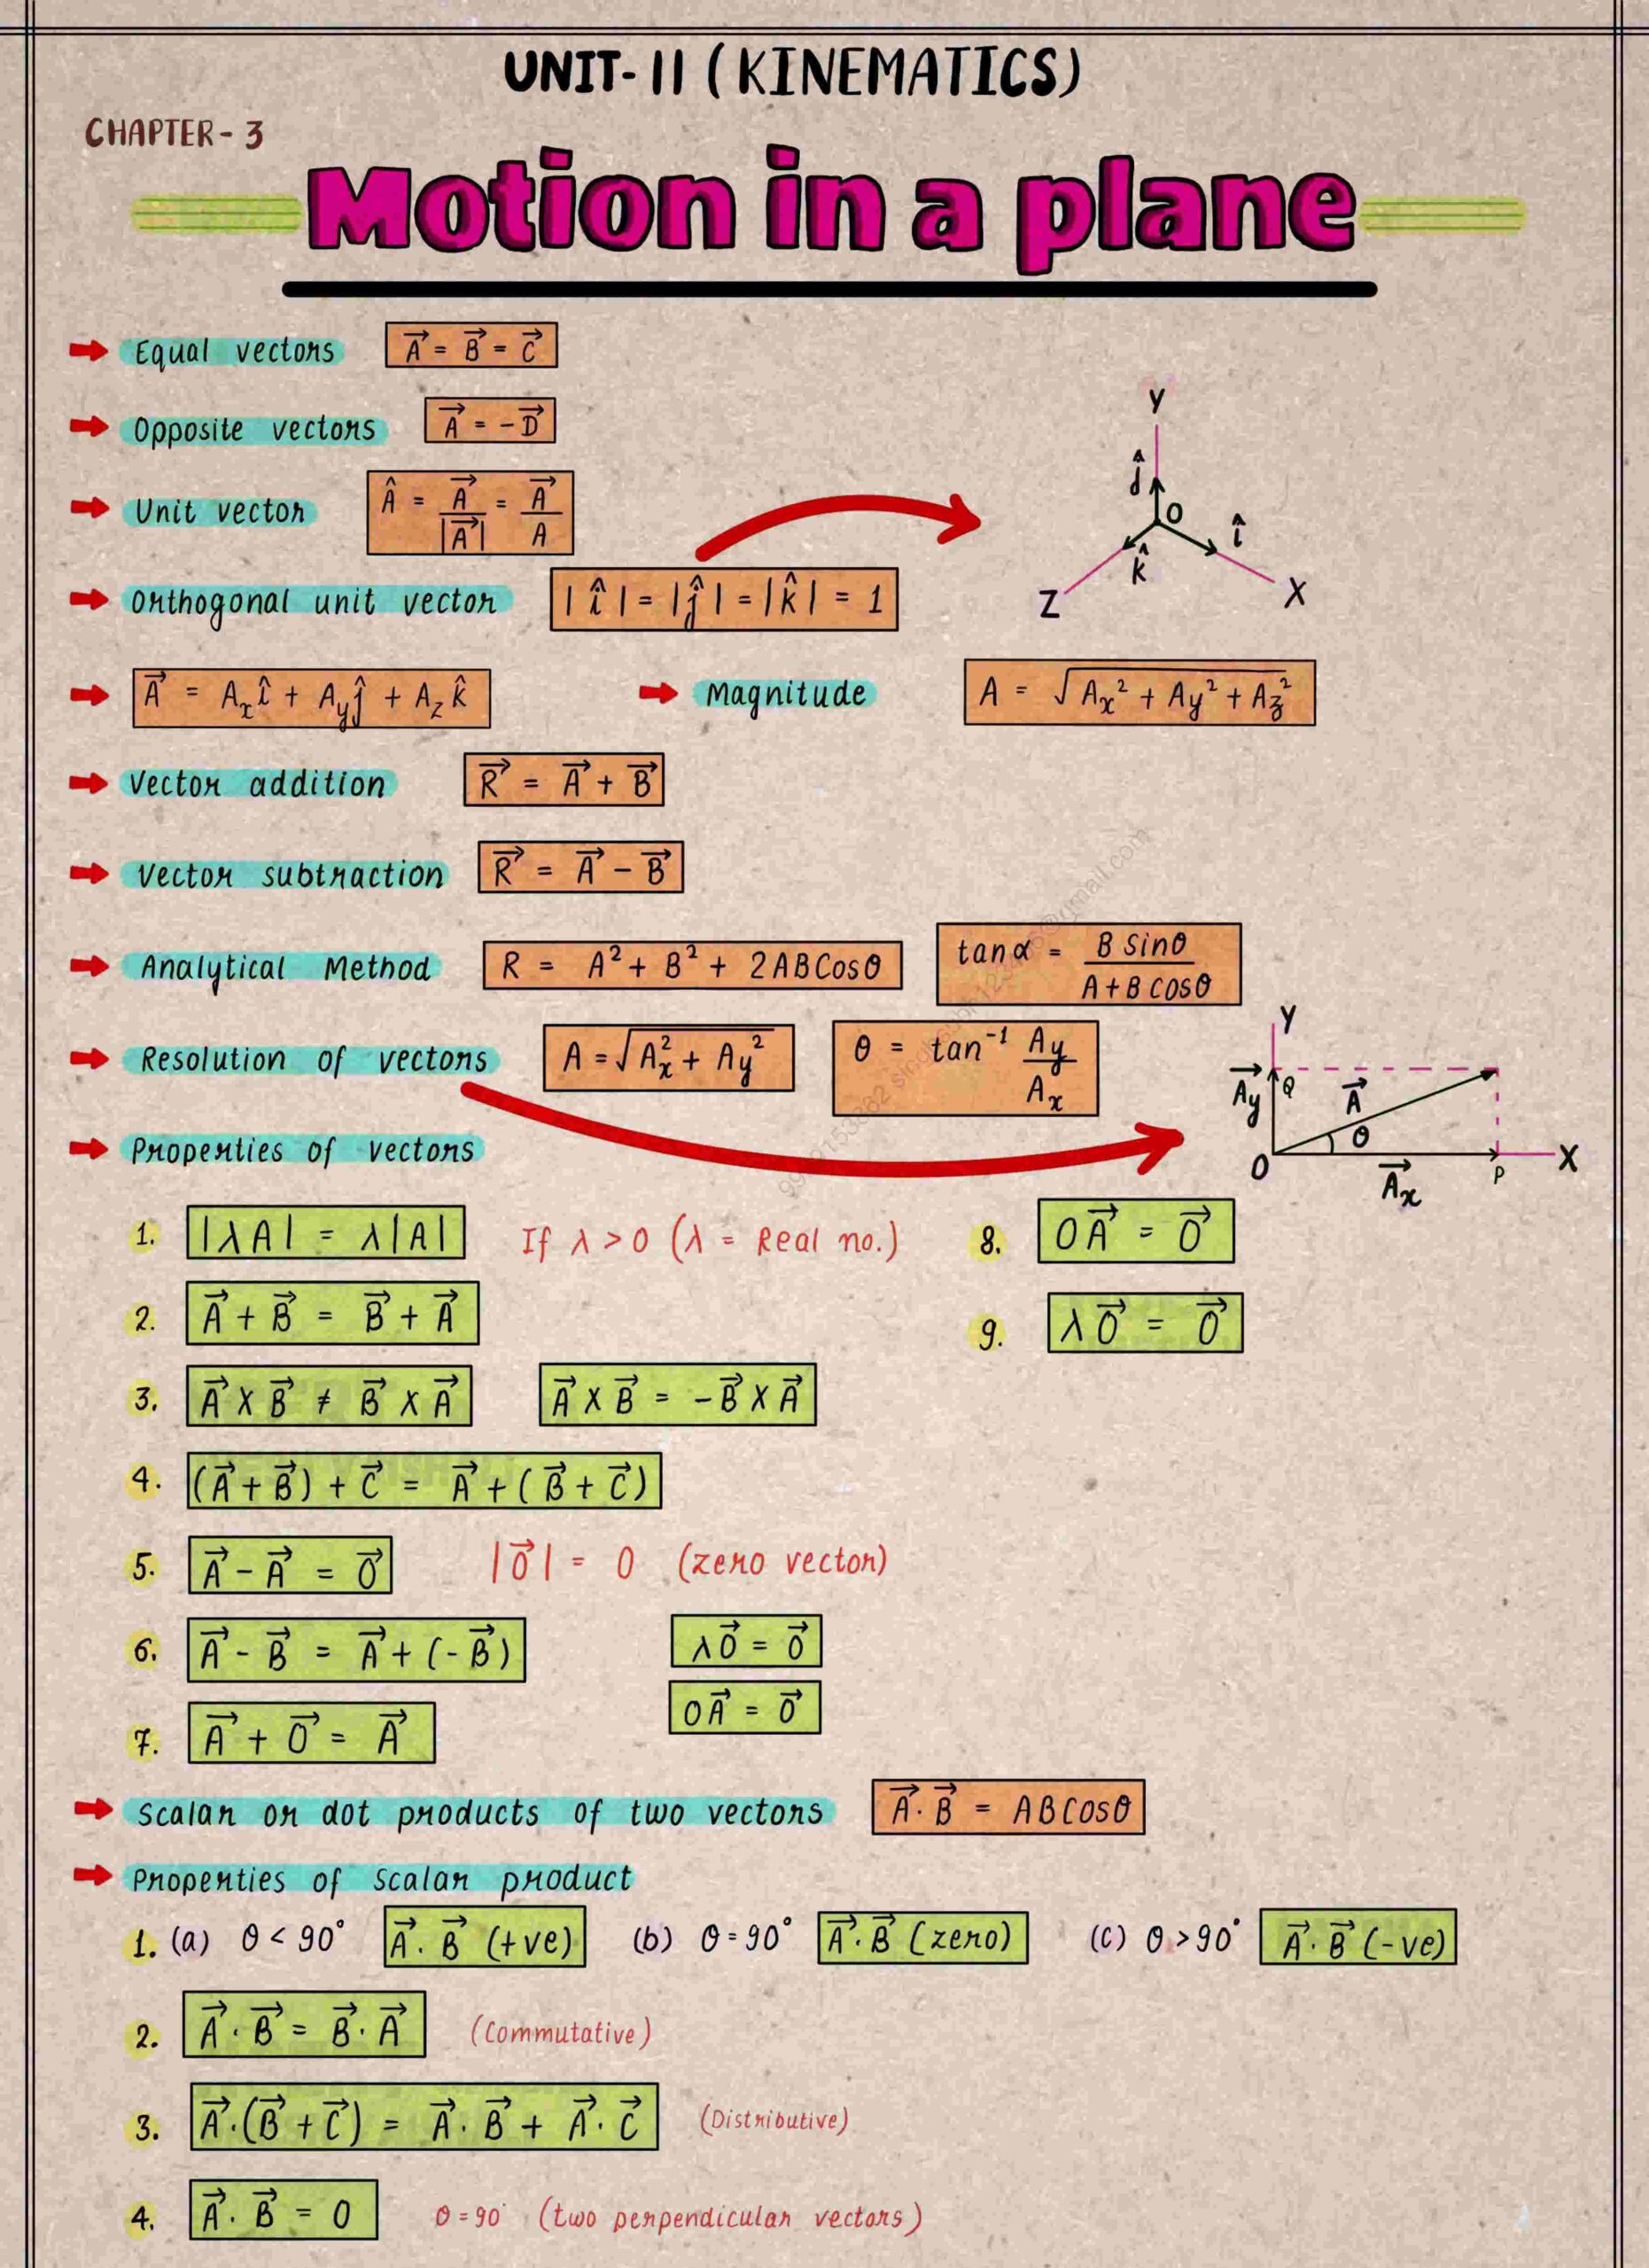 UNIT-II (KINEMATICS)
CHAPTER-3
Motion in a plane
➡ Equal vectors A⃗ = B⃗ = C⃗
➡ Opposite vectors A⃗ = -D⃗
➡ Unit vector Â = A⃗/|A⃗| = A⃗/A
➡ Orthogonal unit vector |î| = |ĵ| = |k̂| = 1
Y
ĵ
O
î
k̂
Z
X
➡ A⃗ = Aₓî + Aᵧĵ + A_z k̂ ➡ Magnitude A = √(Aₓ² + Aᵧ² + A_z²)
➡ Vector addition R⃗ = A⃗ + B⃗
➡ Vector subtraction R⃗ = A⃗ − B⃗
➡ Analytical Method R = A² + B² + 2ABCosθ tanα = B Sinθ / A+B cosθ
➡ Resolution of vectors A = √(Aₓ² + Aᵧ²) θ = tan⁻¹ Aᵧ/Aₓ
Y
A⃗ᵧ
Q
A⃗
θ
O
A⃗ₓ
P
X
➡ Properties of vectors
1. |λA| = λ|A| If λ > 0 (λ = Real no.)
8. 0A⃗ = 0⃗
2. A⃗ + B⃗ = B⃗ + A⃗
9. λ0⃗ = 0⃗
3. A⃗ X B⃗ ≠ B⃗ X A⃗ A⃗ X B⃗ = -B⃗ X A⃗
4. (A⃗ + B⃗) + C⃗ = A⃗ + (B⃗ + C⃗)
5. A⃗ − A⃗ = 0⃗ |0⃗| = 0 (zero vector)
6. A⃗ - B⃗ = A⃗ + (-B⃗) λ0⃗ = 0⃗
0A⃗ = 0⃗
7. A⃗ + 0⃗ = A⃗
➡ Scalar or dot products of two vectors A⃗. B⃗ = ABCosθ
➡ Properties of scalar product
1. (a) θ < 90° A⃗. B⃗ (+ve) (b) θ = 90° A⃗. B⃗ (zero) (c) θ > 90° A⃗. B⃗ (-ve)
2. A⃗ . B⃗ = B⃗ . A⃗ (Commutative)
3. A⃗.(B⃗ + C⃗) = A⃗. B⃗ + A⃗. C⃗ (Distributive)
4. A⃗. B⃗ = 0 θ = 90° (two perpendicular vectors)